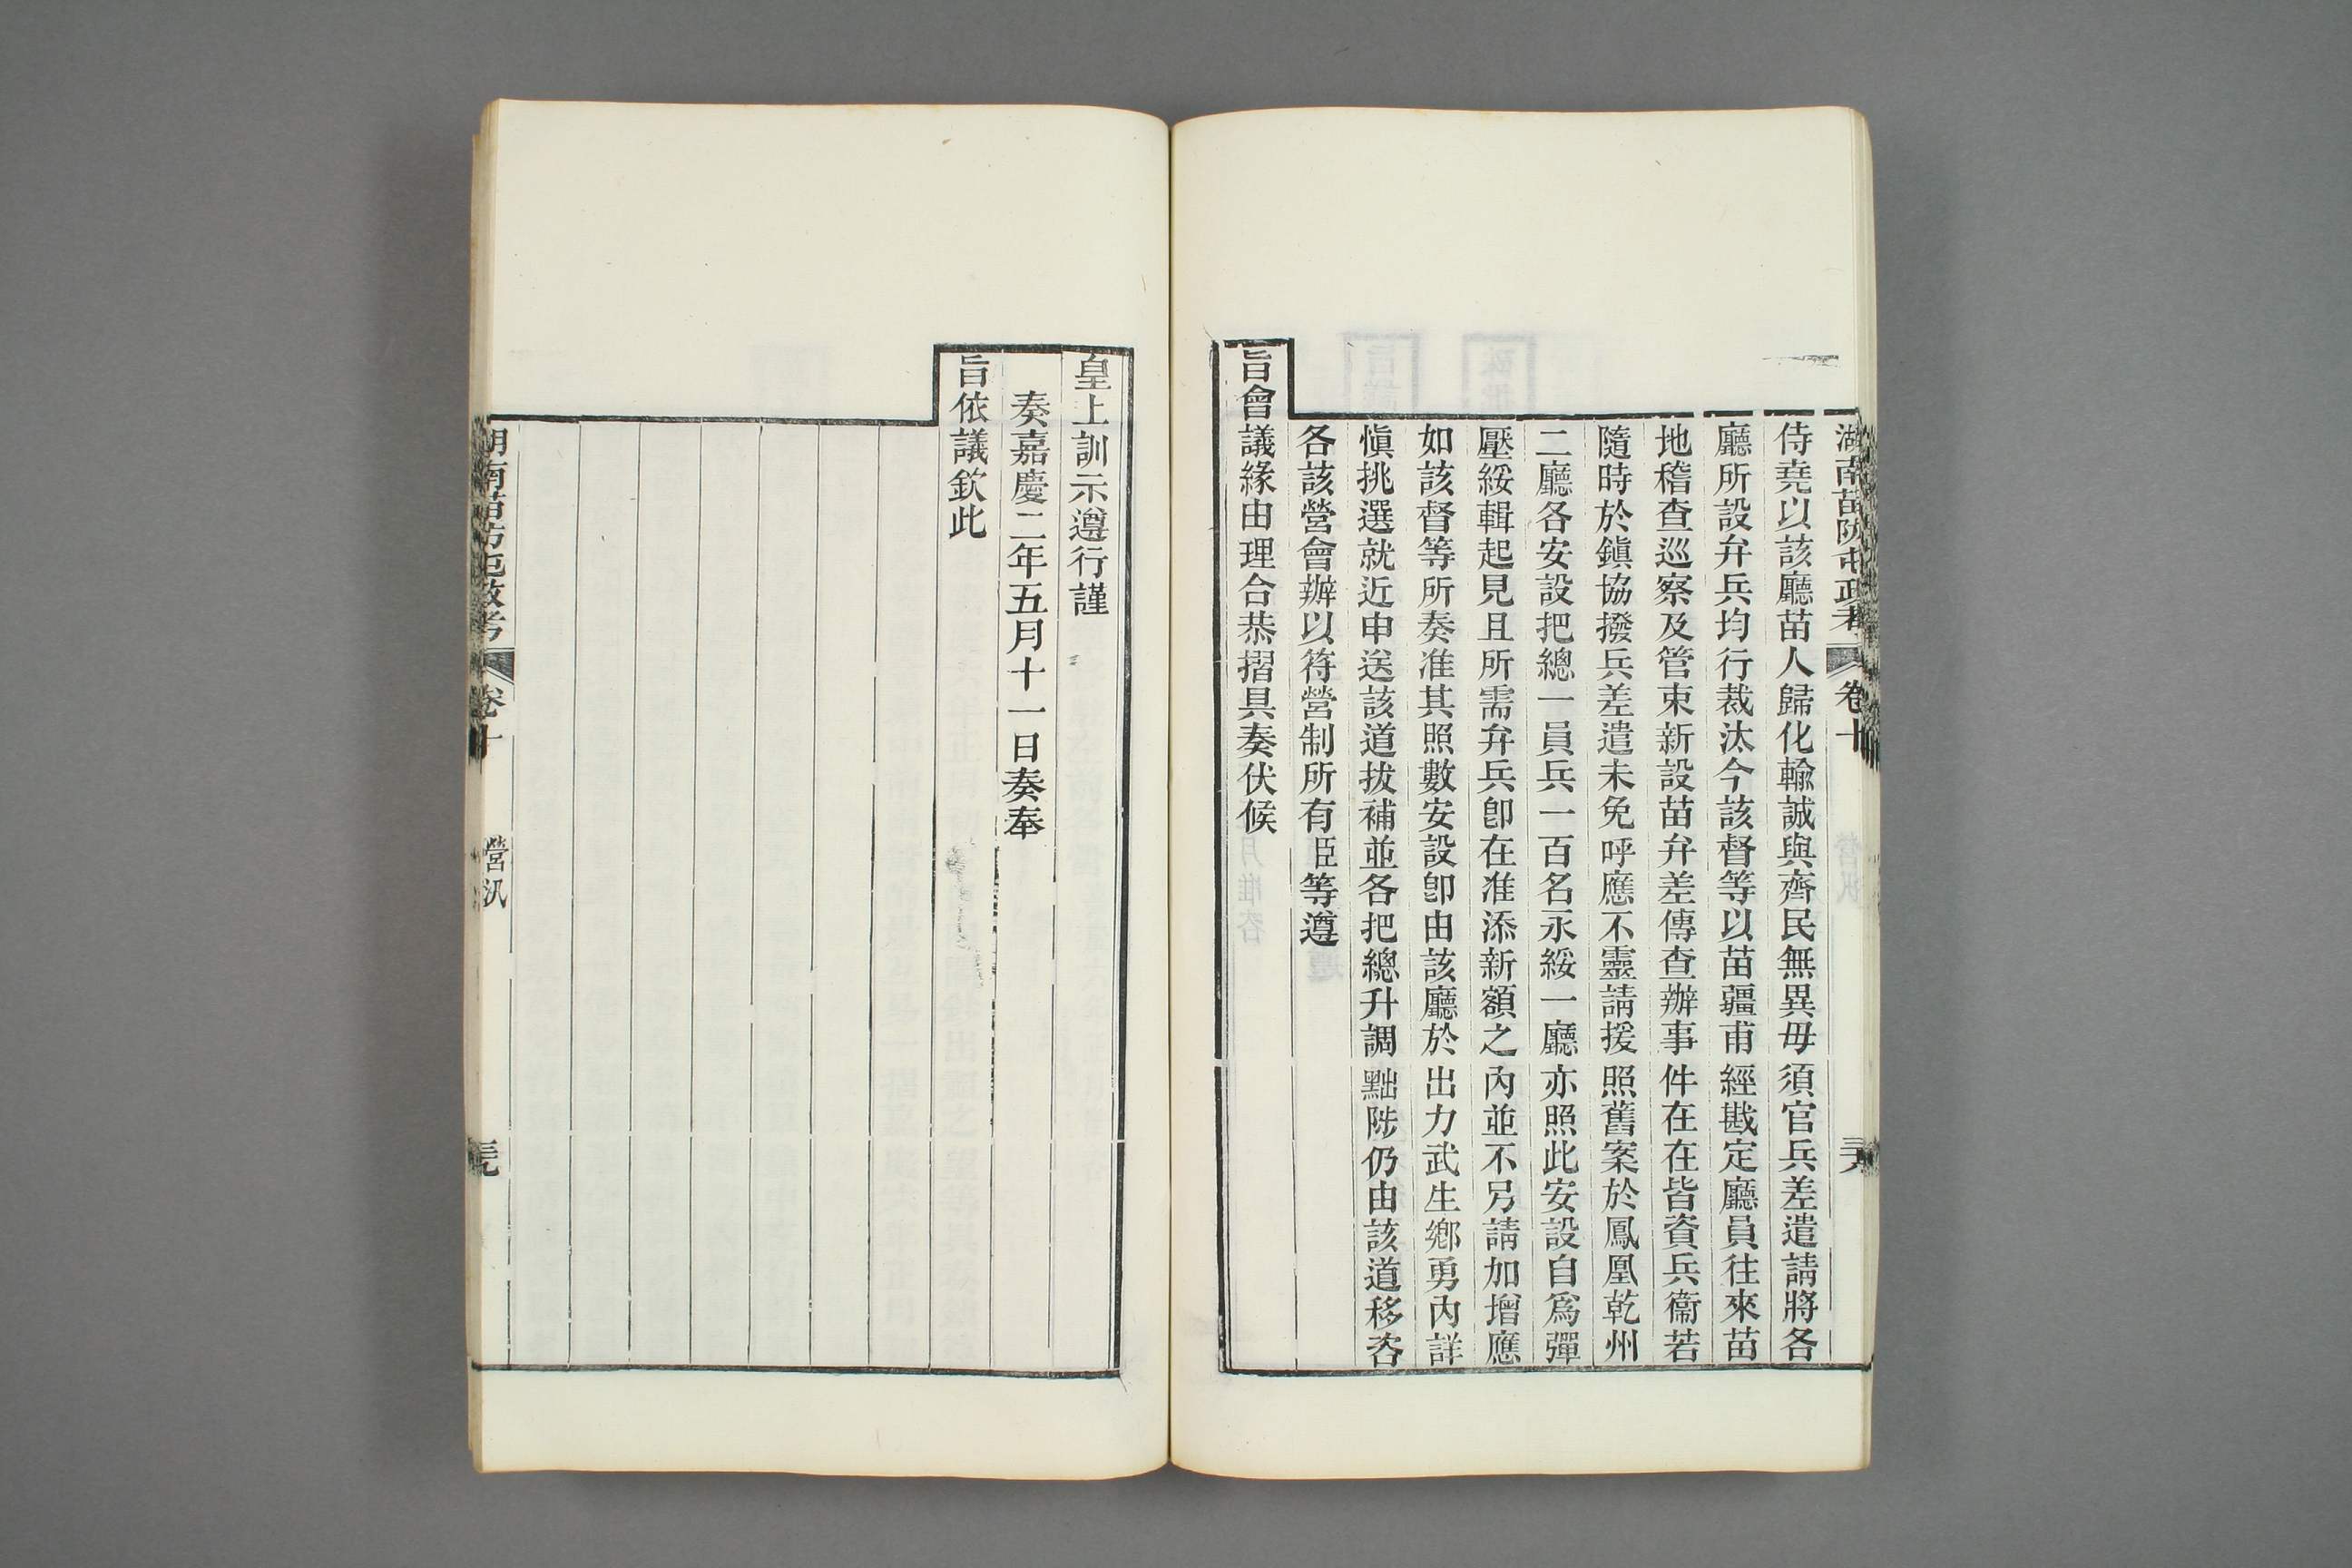 湖南苗防屯政考 卷十 三六
侍堯以該廳苗人歸化輸誠與齊民無異毋須官兵差遣請將各
廳所設弁兵均行裁汰今該督等以苗疆甫經戡定廳員往來苗
地稽查巡察及管束新設苗弁差傳查辦事件在在皆資兵衞若
隨時於鎭協撥兵差遣未免呼應不靈請援照舊案於鳳凰乾州
二廳各安設把總一員兵一百名永綏一廳亦照此安設自爲彈
壓綏輯起見且所需弁兵卽在准添新額之內並不另請加增應
如該督等所奏准其照數安設卽由該廳於出力武生鄕勇內詳
愼挑選就近申送該道拔補並各把總升調黜陟仍由該道移咨
各該營會辦以符營制所有臣等遵
旨會議緣由理合恭摺具奏伏候
皇上訓示遵行謹
奏嘉慶二年五月十一日奏奉
旨依議欽此
湖南苗防屯政考 卷十 營汛